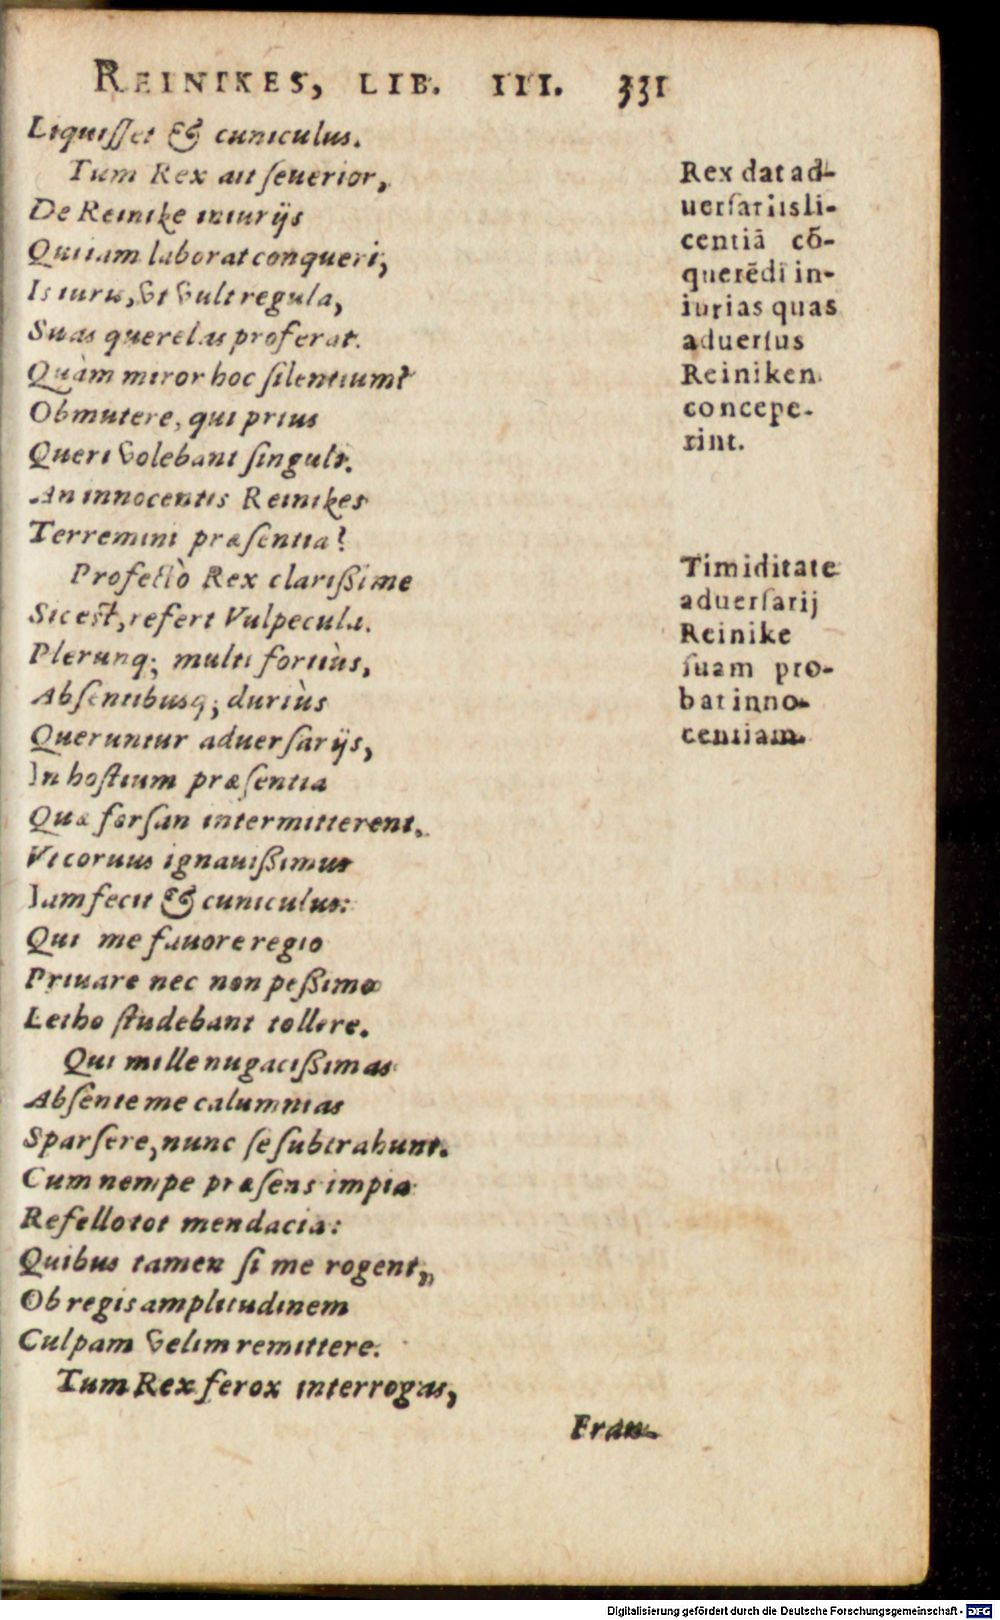 REINIKES, LIB. III. 331
Liquiſſet & cuniculus.
Tum Rex ait ſeuerior,
De Reinike iniurijs
Qui iam laborat conqueri,
Is iuris, vt vult regula,
Suas querelas proferat.
Quàm miror hoc ſilentium?
Obmutere, qui prius
Queri volebant ſinguli.
An innocentis Reinikes
Terremini præſentia?
Profectò Rex clarißime
Sic eſt, refert Vulpecula.
Plerunq; multi fortiùs,
Abſentibusq; duriùs
Queruntur aduerſarijs,
In hoſtium præſentia
Quæ forſan intermitterent,
Vt coruus ignauißimus
Iam fecit & cuniculus:
Qui me fauore regio
Priuare nec non peßimo
Letho ſtudebant tollere.
Qui mille nugacißimas
Abſente me calumnias
Sparſere, nunc ſe ſubtrahunt.
Cum nempe præſens impia
Refello tot mendacia:
Quibus tamen ſi me rogent,
Ob regis amplitudinem
Culpam velim remittere.
Tum Rex ferox interrogas,
Fran-
Rex dat ad-
uerſariis li-
centiā cō-
querēdi in-
iurias quas
aduerſus
Reiniken
concepe-
rint.
Timiditate
aduerſarij
Reinike
ſuam pro-
bat inno-
centiam.
Digitalisierung gefördert durch die Deutsche Forschungsgemeinschaft - DFG